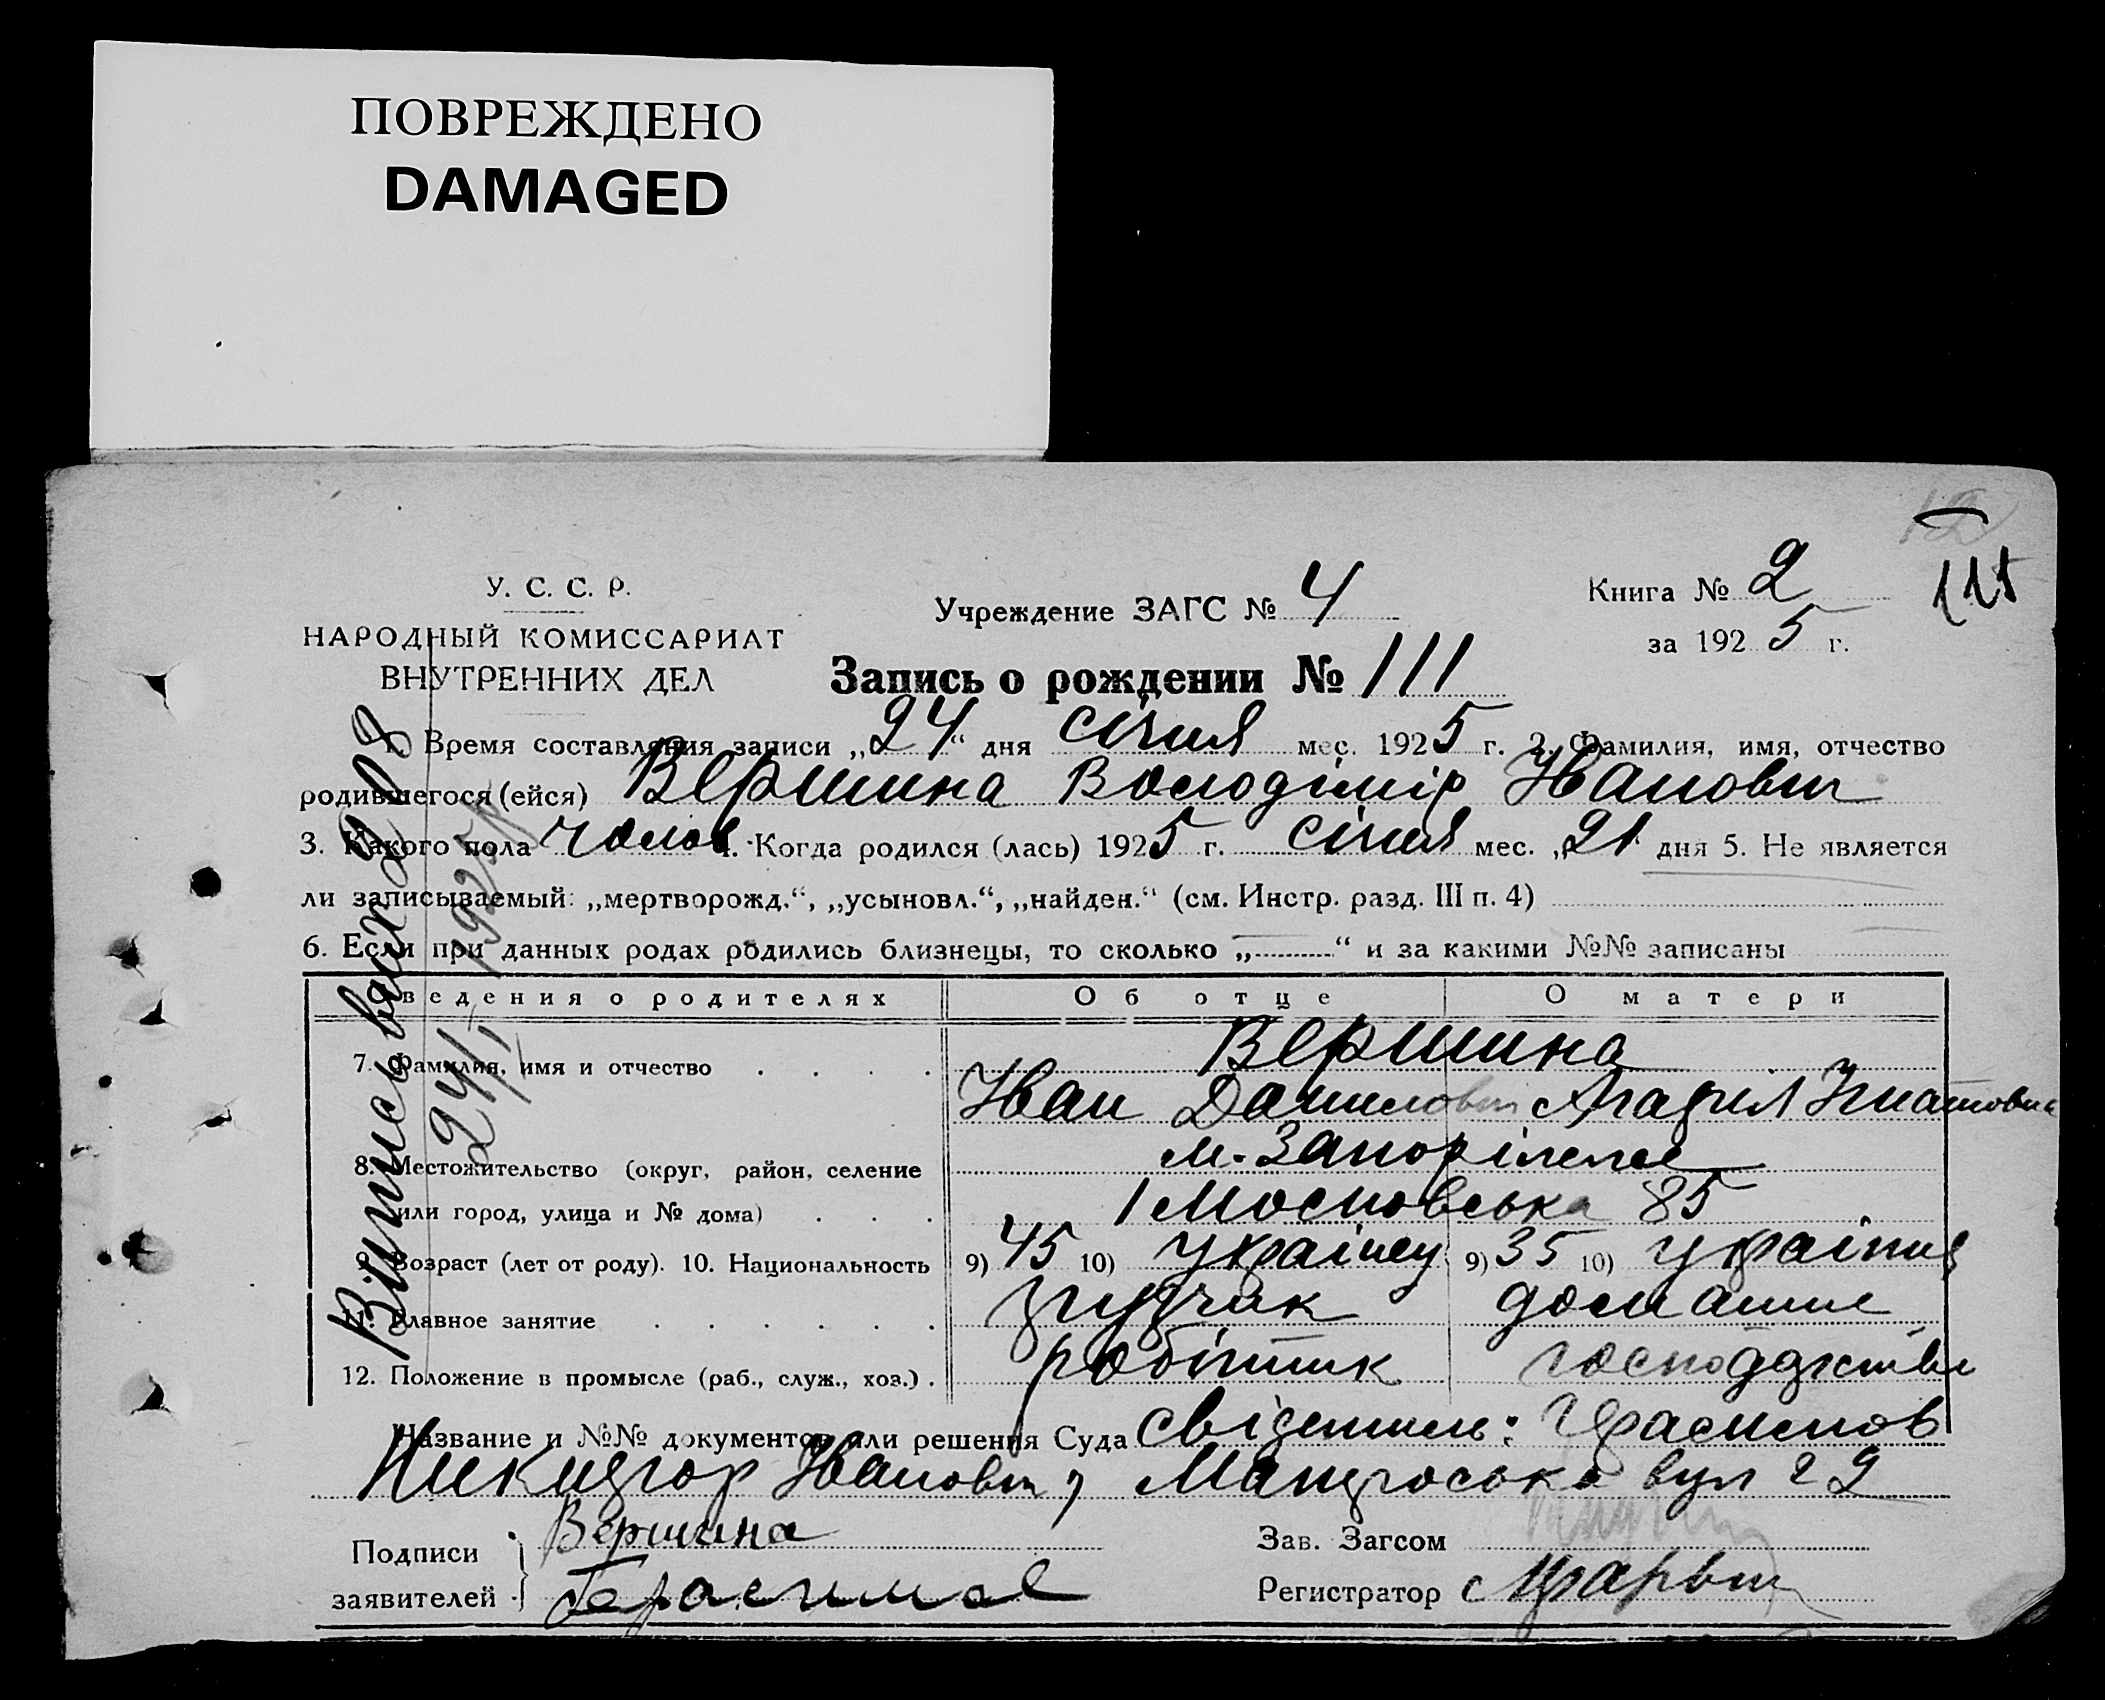 ПОВРЕЖДЕНО
DAMAGED
У. С. С. Р.
НАРОДНЫЙ КОМИССАРИАТ
ВНУТРЕННИХ ДЕЛ
Учреждение ЗАГС № 4
Книга № 2
за 1925 г.
115
Запись о рождении № 111
1. Время составления записи „24“ дня січня мес. 1925 г. 2. Фамилия, имя, отчество
родившегося (ейся) Вершина Володімір Іванович
3. Какого пола чолов. 4. Когда родился (лась) 1925 г. січня мес. „21 дня 5. Не является
ли записываемый: „мертворожд.“, „усыновл.“, „найден.“ (см. Инстр. разд. III п. 4)
6. Если при данных родах родились близнецы, то сколько „—“ и за какими №№ записаны
Сведения о родителях Об отце О матери
7. Фамилия, имя и отчество Вершина
Іван Данилович Агафия Игнатовна
8. Местожительство (округ, район, селение м. Запоріжжє
или город, улица и № дома) Московська 85
9. Возраст (лет от роду). 10. Национальность 9) 45 10) українец 9) 35 10) україн
11. Главное занятие домашнє
12. Положение в промысле (раб., служ., хоз.) робітник господарство
Название и №№ документов или решения Суда свідетель: Герасимов
Никифор Іванович, вул 22
Подписи заявителей Вершина
Герасимов
Зав. Загсом
Регистратор
Випись
24/I 1925 р